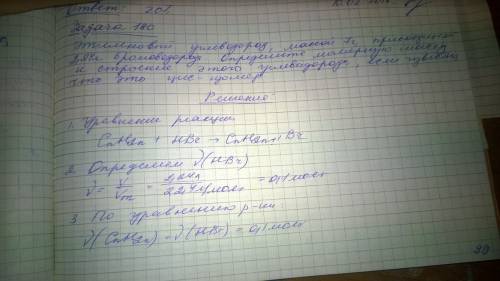 Ответ: 20л
Задача 180
Этиленовый углеводород, массой 7г присоединяет
2,24л бромоводорода. Определите молярную массу
и строение этого углеводорода, если
что это цис-изомер
Решение
1. Уравнение реакции
CnH2n + HBr → CnH2n+1Br
2. Определяем ν(HBr)
ν = V/Vm = 2,24л/22,4л/моль = 0,1моль
3. По уравнению р-ии:
ν(CnH2n) = ν(HBr) = 0,1моль